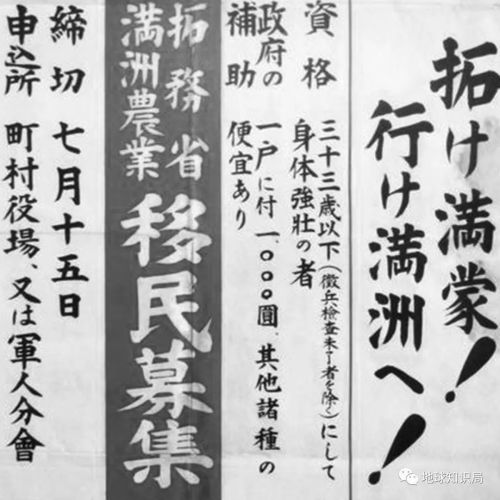 拓け満蒙！
行け満洲へ！
資格 三十三歳以下（徴兵検査未了者を除く）にして
身体強壮の者
政府の補助 一戸に付一、〇〇〇圓、其他諸種の
便宜あり
拓務省
満洲農業
移民募集
締切 七月十五日
申込所 町村役場、又は軍人分會
地球知识局